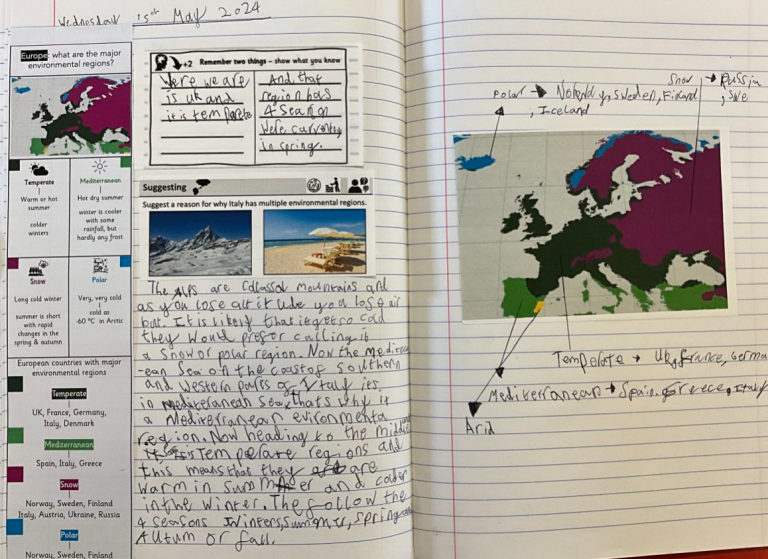 Wednesday 15th May 2024
Europe: what are the major
environmental regions?
Temperate
Warm or hot
summer
colder
winters
Mediterranean
Hot dry summer
winter is cooler
with some
rainfall, but
hardly any frost
Snow
Long cold winter
summer is short
with rapid
changes in the
spring & autumn
Polar
Very, very cold
cold as
-60 °C in Arctic
European countries with major
environmental regions
Temperate
UK, France, Germany,
Italy, Denmark
Mediterranean
Spain, Italy, Greece
Snow
Norway, Sweden, Finland
Italy, Austria, Ukraine, Russia
Polar
Norway, Sweden, Finland
+2 Remember two things – show what you know
Were we are
is uk and
it is temperate
And, that
region has
4 season
were currently
in spring.
Suggesting
Suggest a reason for why Italy has multiple environmental regions.
The Alps are collassal mountains and
as you lose altitude you lose air
but. It is likely that it gets so cold
they would prefer calling it
a snow or polar region. Now the mediterr
-ean Sea on the coast of southern
and western parts of Italy its
in mediteranean sea, thats why it
a Mediteranean evironmental
region. Now heading to the middle
it is temperate regions and
this means that they are
warm in summer and colder
in the winter. The follow the
4 seasons winters, summer, spring
Autum or fall.
Snow → Russia
, Swe
Polar → Noway, Sweden, Finland
, Iceland
Temperate → UK, france, Germa
Mediterranean → Spain, Greece, Italy
Arid